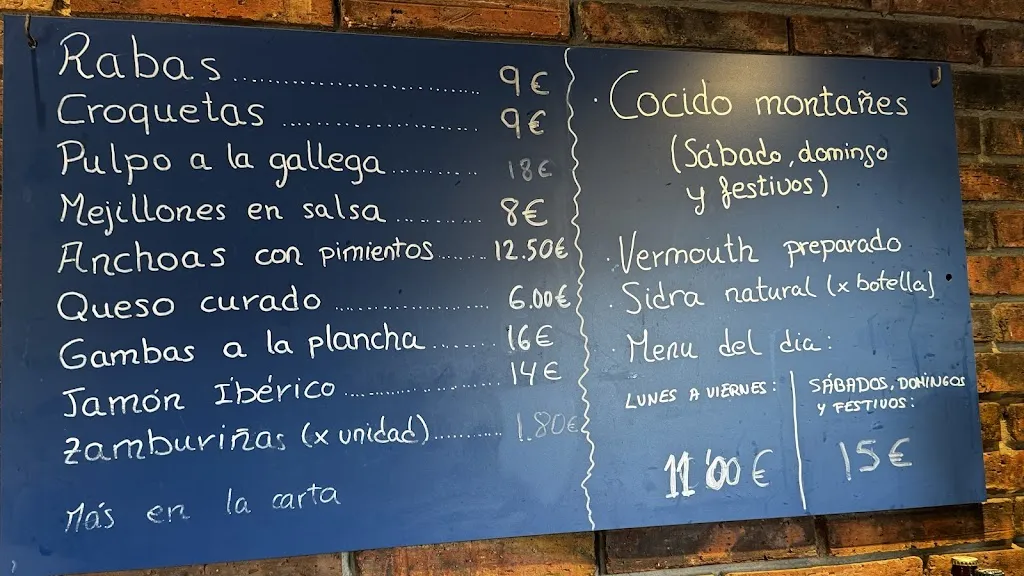 Rabas.............................. 9€
Croquetas ........................ 9€
Pulpo a la gallega............ 18€
Mejillones en salsa............ 8€
Anchoas con pimientos...... 12.50€
Queso curado ................... 6.00€
Gambas a la plancha......... 16€
Jamón Ibérico.................... 14€
Zamburiñas (x unidad).......... 1.80€
Más en la carta
· Cocido montañes
(Sábado, domingo
y festivos)
· Vermouth preparado
· Sidra natural (x botella)
· Menu del dia:
LUNES A VIERNES:
11'00€
SÁBADOS, DOMINGOS
Y FESTIVOS:
15€